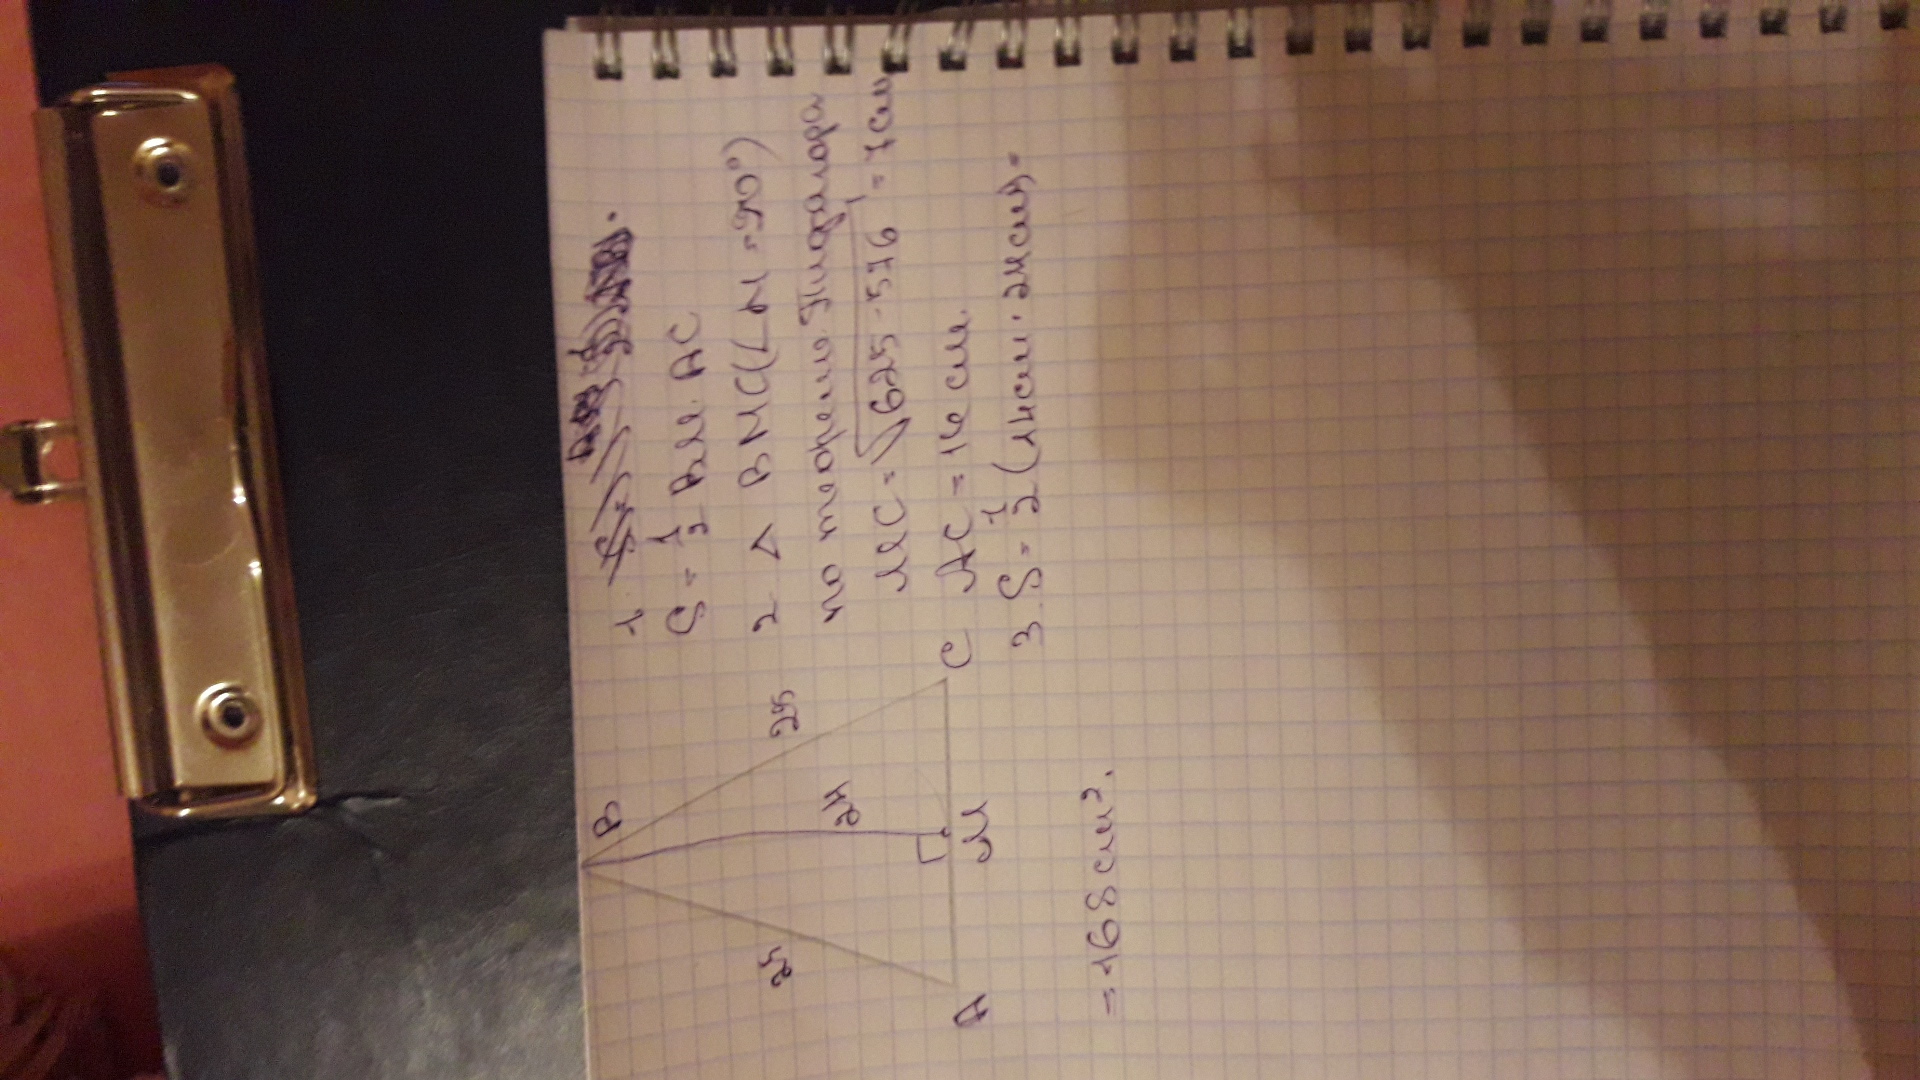 B
25
25
24
A
M
C
1.
S = 1/2 BM. AC
2 Δ BMC(∠M =90°)
по теореме Пифагора
MC = √625-576 = 7см
AC = 14 см.
3. S = 1/2 (14см · 24см) =
= 168 см².